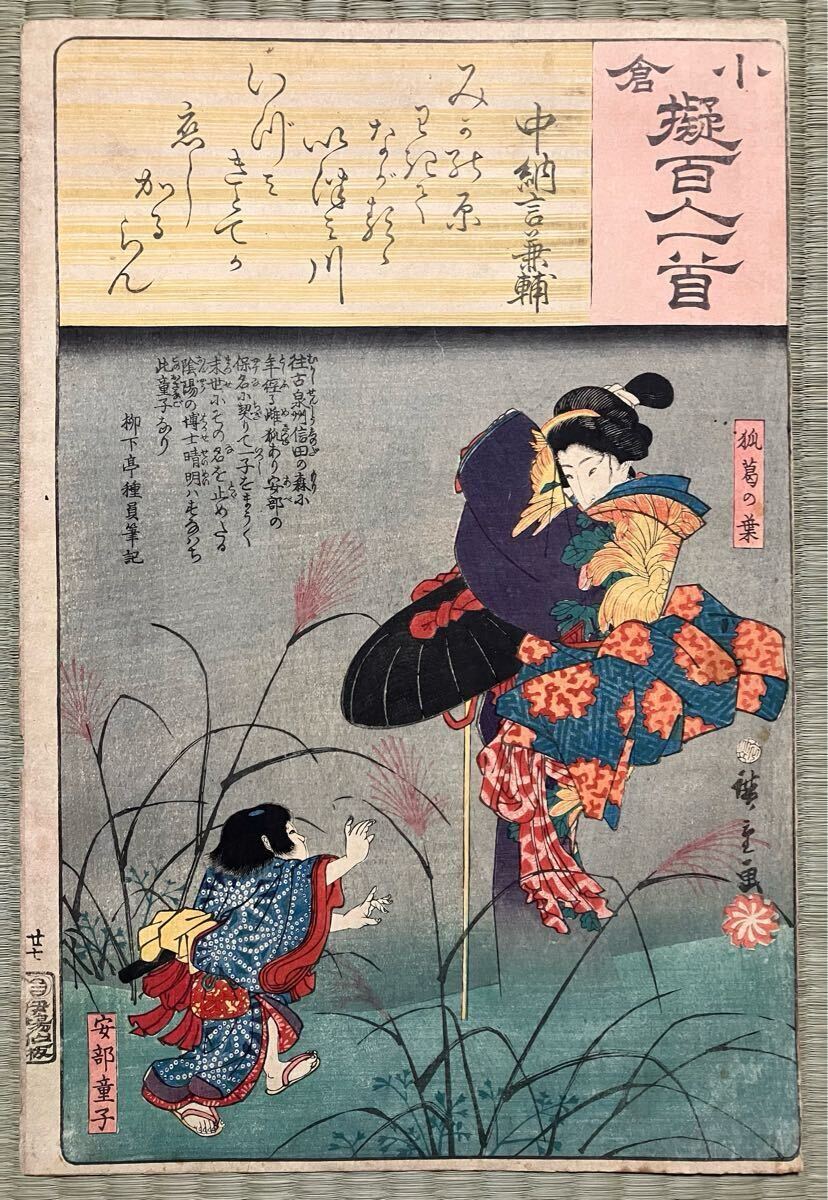 小倉
擬百人一首
中納言兼輔
みかの原
わきて
ながるゝ
いづみ川
いつみ
きとてか
恋し
かるらん
往古泉州信田の森に
年経る雌狐あり安部の
保名に契りて一子をまうく
末世にその名を止めたる
陰陽の博士晴明ハすなはち
此童子なり
柳下亭種員筆記
狐葛の葉
廣重画
安部童子
廿七
伊場仙板